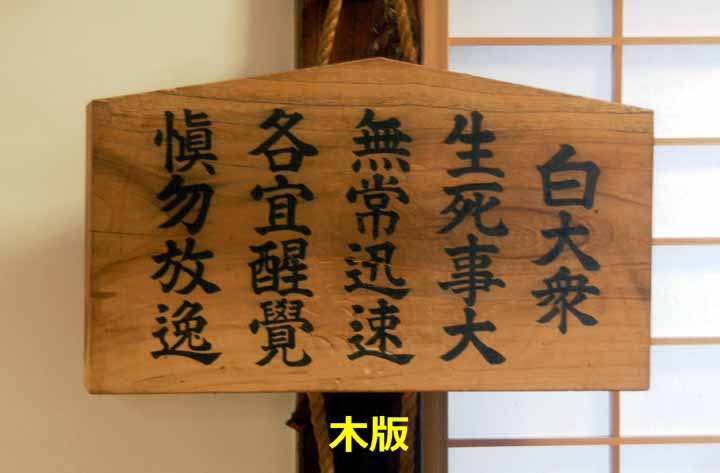 白大衆
生死事大
無常迅速
各宜醒覺
慎勿放逸
木版